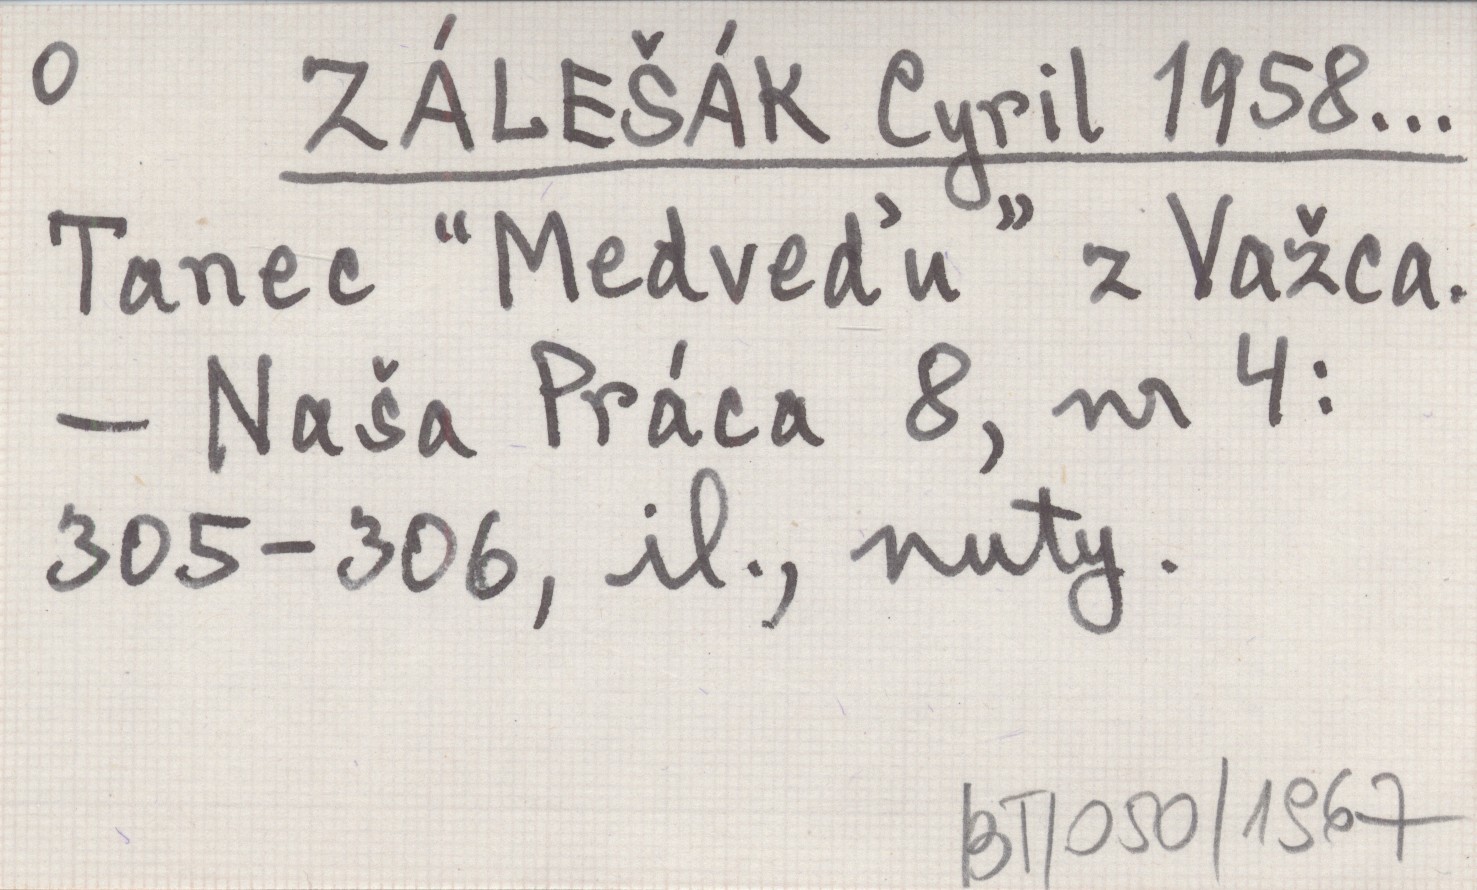 O ZÁLEŠÁK Cyril 1958...
Tanec “Medveďu” z Važca.
– Naša Práca 8, nr 4:
305-306, il., nuty.
BT/050/1967